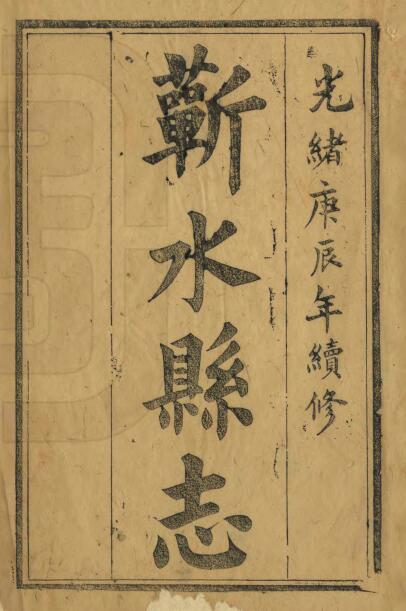 光緒庚辰年續修
蘄水縣志